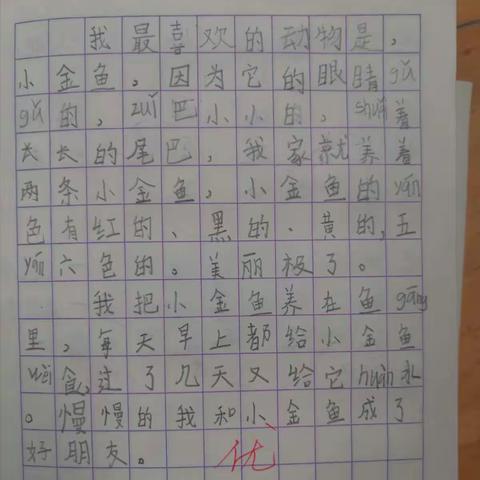 我最喜欢的动物是，
小金鱼。因为它的眼睛gǔ
gǔ的，zuǐ巴小小的，shuǎi着
长长的尾巴，我家就养着
两条小金鱼，小金鱼的yán
色有红的、黑的、黄的，五
yán六色的。美丽极了。
我把小金鱼养在鱼gāng
里，每天早上都给小金鱼
wèi食，过了几天又给它huàn水
。慢慢的我和小金鱼成了
好朋友。
优